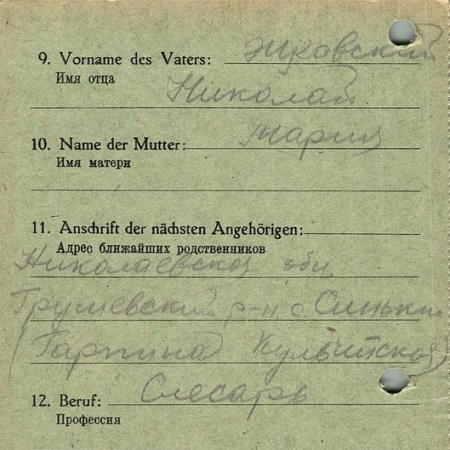 9. Vorname des Vaters: Жуковский
Имя отца
Николай
10. Name der Mutter: Мария
Имя матери
11. Anschrift der nächsten Angehörigen:
Адрес ближайших родственников
Николаевской обл.
р-н с. Синьки
Гарпина
12. Beruf: Слесарь
Профессия